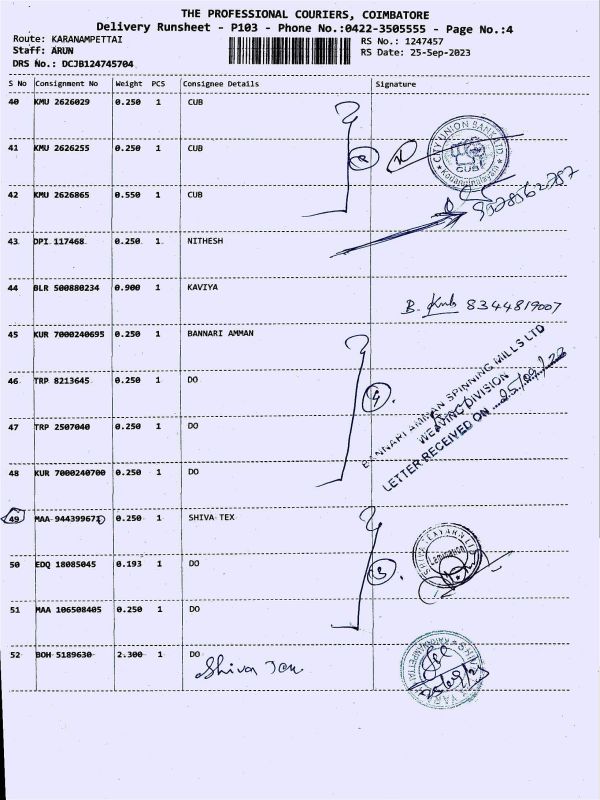 THE PROFESSIONAL COURIERS, COIMBATORE
Delivery Runsheet - P103 - Phone No.:0422-3505555 - Page No.:4
Route: KARANAMPETTAI
RS No.: 1247457
Staff: ARUN
RS Date: 25-Sep-2023
DRS No.: DCJB124745704
S No Consignment No Weight PCS Consignee Details Signature
40 KMU 2626029 0.250 1 CUB
41 KMU 2626255 0.250 1 CUB
CITY UNION BANK LTD
CUB
42 KMU 2626865 0.550 1 CUB
43 DPI 117468 0.250 1 NITHESH
44 BLR 500880234 0.900 1 KAVIYA
B. 8344819007
45 KUR 7000240695 0.250 1 BANNARI AMMAN
46 TRP 8213645 0.250 1 DO
4
BANNARI AMMAN SPINNING MILLS LTD
WEAVING DIVISION
LETTER RECEIVED ON 25/09/23
47 TRP 2507040 0.250 1 DO
48 KUR 7000240700 0.250 1 DO
49 MAA 944399671 0.250 1 SHIVA TEX
50 EDQ 18085045 0.193 1 DO
3
51 MAA 106508405 0.250 1 DO
52 BOH 5189630 2.300 1 DO
Shiva Tex